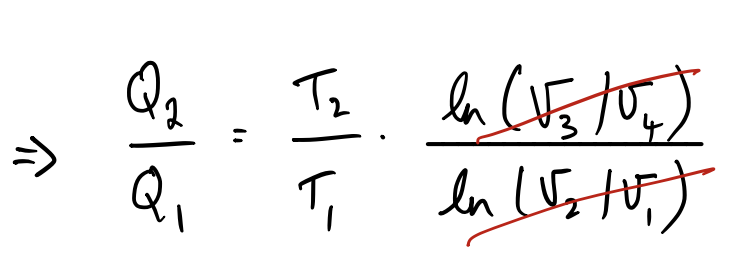 ⇒ Q₂/Q₁ = T₂/T₁ · ln(V₃/V₄)/ln(V₂/V₁)